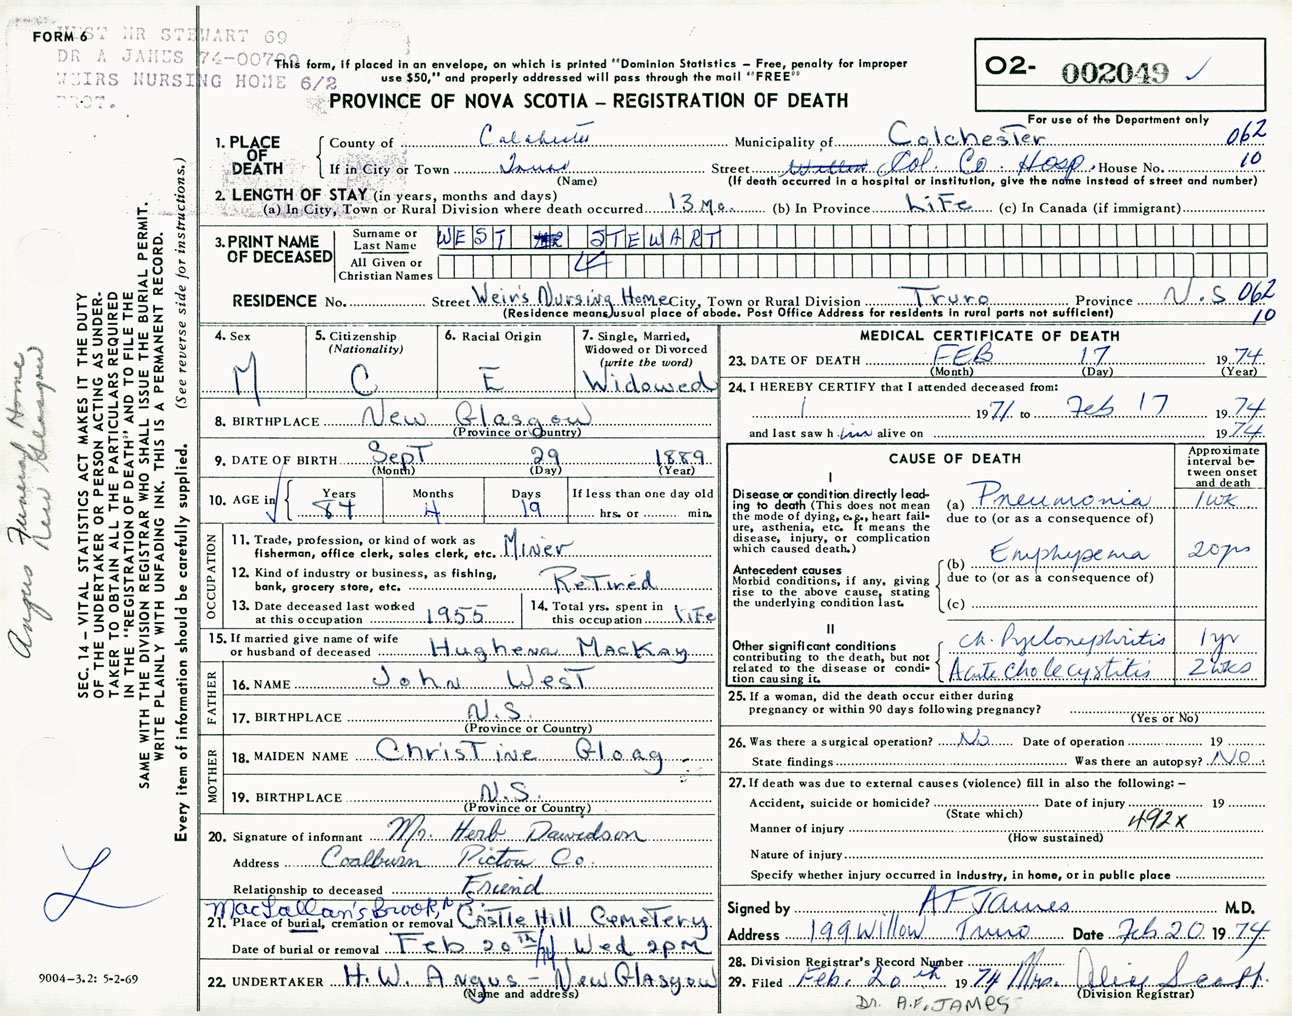 FORM 6
WEST MR STEWART 69
DR A JAMES 74-00700
WEIRS NURSING HOME 6/2
PROT.
This form, if placed in an envelope, on which is printed "Dominion Statistics – Free, penalty for improper
use $50," and properly addressed will pass through the mail "FREE"
PROVINCE OF NOVA SCOTIA – REGISTRATION OF DEATH
O2- 002049 ✓
For use of the Department only
1. PLACE OF DEATH
County of Colchester Municipality of Colchester 062
If in City or Town Truro Street Willow Col. Co. Hosp. House No. 10
(Name) (If death occurred in a hospital or institution, give the name instead of street and number)
2. LENGTH OF STAY (in years, months and days)
(a) In City, Town or Rural Division where death occurred 13 Mo. (b) In Province LiFe (c) In Canada (if immigrant)
3. PRINT NAME OF DECEASED
Surname or Last Name WEST STEWART
All Given or Christian Names
RESIDENCE No. Street Weir's Nursing Home City, Town or Rural Division Truro Province N.S 062
(Residence means usual place of abode. Post Office Address for residents in rural parts not sufficient) 10
4. Sex M
5. Citizenship (Nationality) C
6. Racial Origin E
7. Single, Married, Widowed or Divorced (write the word) Widowed
8. BIRTHPLACE New Glasgow
(Province or Country)
9. DATE OF BIRTH Sept 29 1889
(Month) (Day) (Year)
10. AGE in Years 84 Months 4 Days 19 If less than one day old hrs. or min.
OCCUPATION
11. Trade, profession, or kind of work as fisherman, office clerk, sales clerk, etc. Miner
12. Kind of industry or business, as fishing, bank, grocery store, etc. Retired
13. Date deceased last worked at this occupation 1955
14. Total yrs. spent in this occupation LiFe
15. If married give name of wife or husband of deceased Hughena MacKay
FATHER
16. NAME John West
17. BIRTHPLACE N.S.
(Province or Country)
MOTHER
18. MAIDEN NAME Christine Gloag
19. BIRTHPLACE N.S.
(Province or Country)
20. Signature of informant Mr. Herb Davidson
Address Coalburn Pictou Co.
Relationship to deceased Friend
MacLallan's Brook, N.S.
21. Place of burial, cremation or removal Castle Hill Cemetery
Date of burial or removal Feb 20th/74 Wed 2pm
22. UNDERTAKER H.W. Angus – New Glasgow
(Name and address)
MEDICAL CERTIFICATE OF DEATH
23. DATE OF DEATH FEB 17 1974
(Month) (Day) (Year)
24. I HEREBY CERTIFY that I attended deceased from:
1 1971 to Feb 17 1974
and last saw h im alive on 1974
CAUSE OF DEATH
Approximate interval between onset and death
I
Disease or condition directly leading to death (This does not mean the mode of dying, e.g., heart failure, asthenia, etc. It means the disease, injury, or complication which caused death.)
(a) Pneumonia 1 wk
due to (or as a consequence of)
Antecedent causes
Morbid conditions, if any, giving rise to the above cause, stating the underlying condition last.
(b) Emphysema 20 yrs
due to (or as a consequence of)
(c)
II
Other significant conditions contributing to the death, but not related to the disease or condition causing it.
Ch. Pyelonephritis 1 yr
Acute Cholecystitis 2 wks
25. If a woman, did the death occur either during
pregnancy or within 90 days following pregnancy?
(Yes or No)
26. Was there a surgical operation? No Date of operation 19
State findings Was there an autopsy? NO
27. If death was due to external causes (violence) fill in also the following: –
Accident, suicide or homicide? Date of injury 19
(State which)
Manner of injury 492x
(How sustained)
Nature of injury
Specify whether injury occurred in industry, in home, or in public place
Signed by A F James M.D.
Address 199 Willow Truro Date Feb 20 1974
28. Division Registrar's Record Number
29. Filed Feb. 20th 1974 Mrs. Alice Scott.
(Division Registrar)
Dr. A.F. JAMES
SEC. 14 – VITAL STATISTICS ACT MAKES IT THE DUTY
OF THE UNDERTAKER OR PERSON ACTING AS UNDER-
TAKER TO OBTAIN ALL THE PARTICULARS REQUIRED
IN THE "REGISTRATION OF DEATH" AND TO FILE THE
SAME WITH THE DIVISION REGISTRAR WHO SHALL ISSUE THE BURIAL PERMIT.
WRITE PLAINLY WITH UNFADING INK. THIS IS A PERMANENT RECORD.
Every item of information should be carefully supplied. (See reverse side for instructions.)
Angus Funeral Home
New Glasgow
9004-3.2: 5-2-69